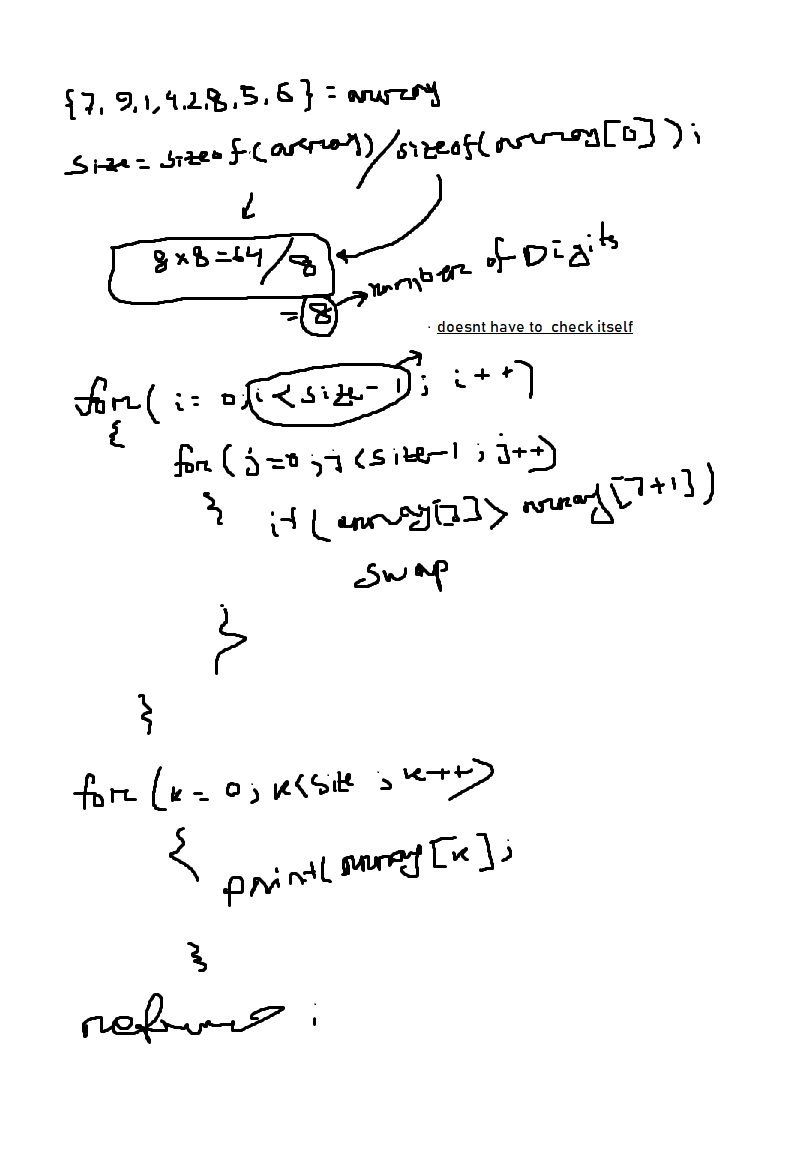 {7, 9, 1, 4, 2, 8, 5, 6} = array
Size = sizeof(array) / sizeof(array[0]);
8 × 8 = 64 / 8
= 8 → number of Digits
doesnt have to check itself
for( i = 0; i < size - 1; i++)
{
for( j = 0; j < size - 1; j++)
{
if( array[j] > array[j+1])
swap
}
}
for( k = 0; k < size; k++)
{
print( array[k];
}
return 0;